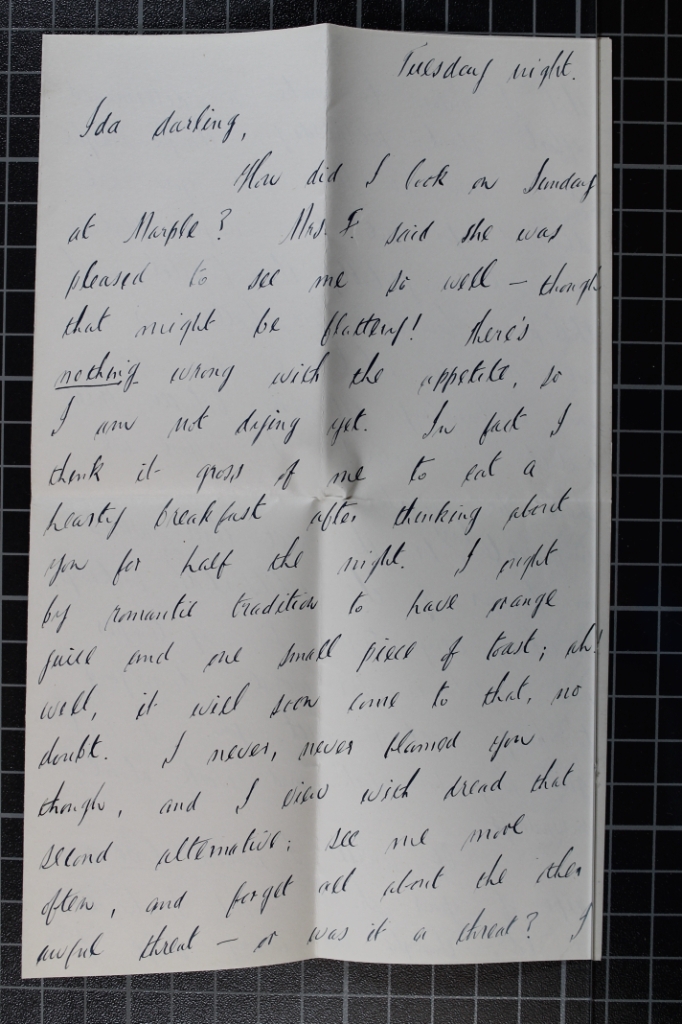 Tuesday night.
Ida darling,
How did I look on Sunday
at Marple? Mrs. F. said she was
pleased to see me so well – though
that might be flattery! There's
nothing wrong with the appetite, so
I am not dying yet. In fact I
think it gross of me to eat a
hearty breakfast after thinking about
you for half the night. I ought
by romantic tradition to have orange
juice and one small piece of toast; ah!
well, it will soon come to that, no
doubt. I never, never blamed you
though, and I view with dread that
second alternative; see me more
often, and forget all about the other
awful threat – or was it a threat? I